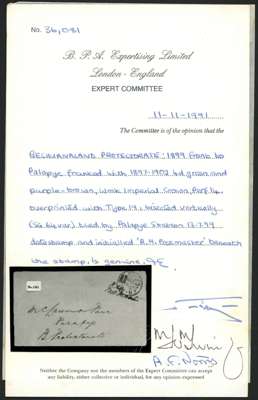 No. 36,081
B. P. A. Expertising Limited
London - England
EXPERT COMMITTEE
11-11-1991
The Committee is of the opinion that the
BECHUANALAND PROTECTORATE: 1899 to
Palapye franked with 1897-1902 ½d green and
purple-brown, wmk Imperial Crown, Perf 14,
overprinted with Type 14, bisected vertically
(SG var) tied by Palapye Station 13.7.99
datestamp and initialled "R.H. Postmaster" beneath
the stamp, is genuine.
B. Protectorate
Neither the Company nor the members of the Expert Committee can accept
any liability, either collective or individual, for any opinion expressed